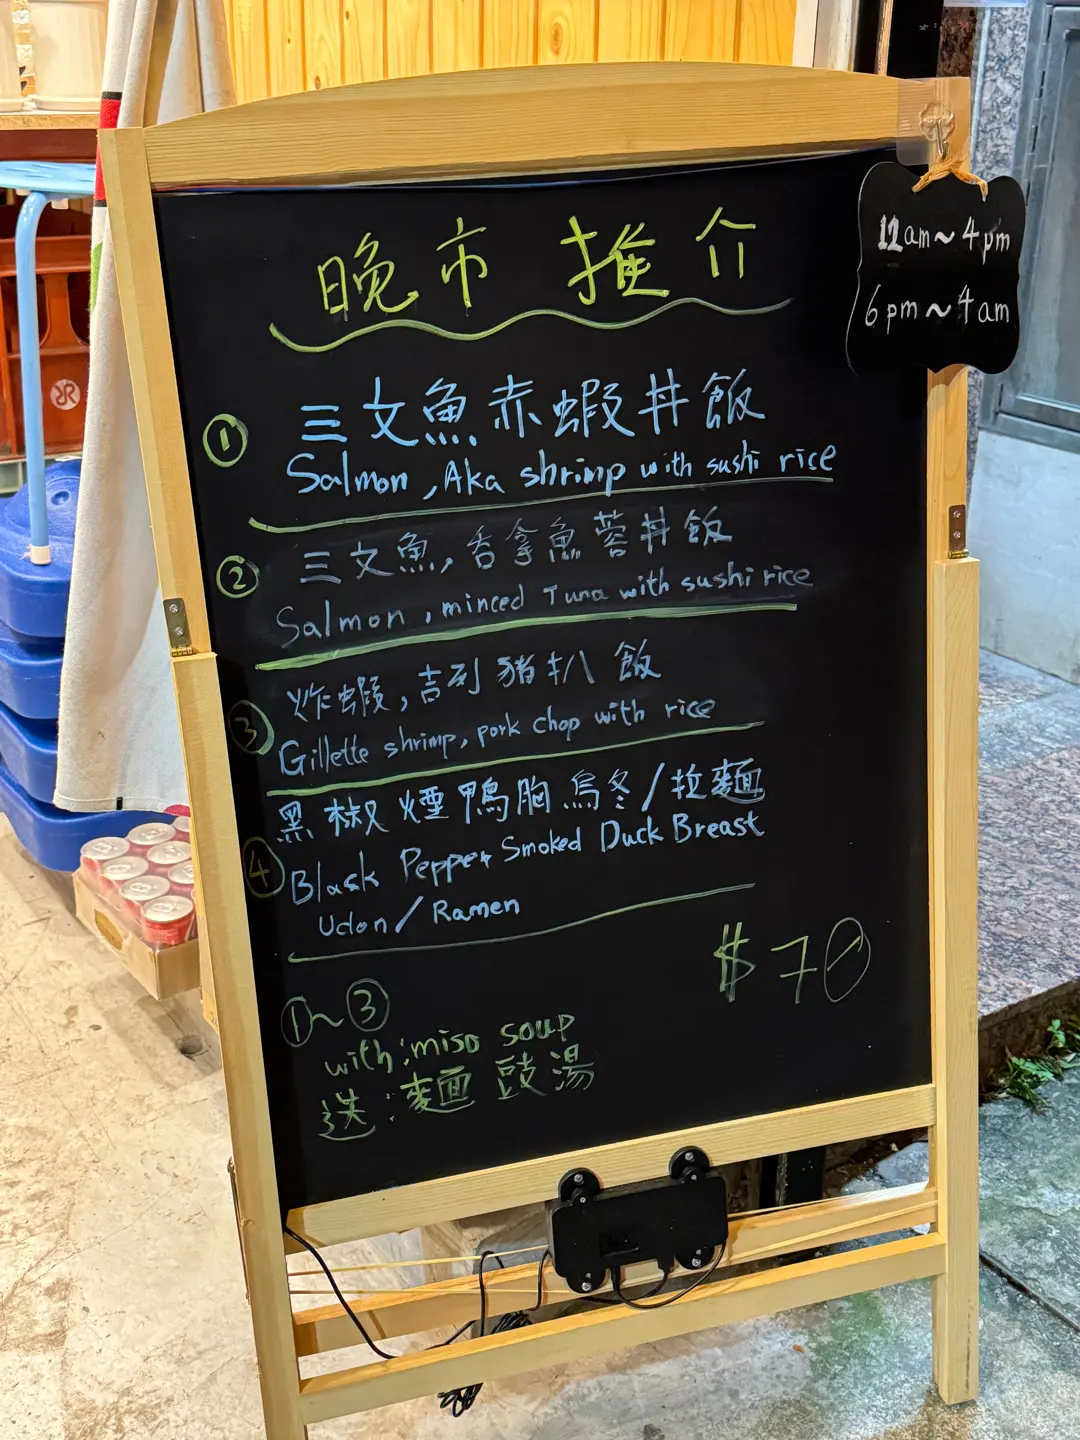 晚市推介
11am~4pm
6pm~4am
① 三文魚赤蝦丼飯
Salmon, Aka shrimp with sushi rice
② 三文魚,吞拿魚蓉丼飯
Salmon, minced Tuna with sushi rice
③ 炸蝦,吉列豬扒飯
Gillette shrimp, pork chop with rice
④ 黑椒煙鴨胸烏冬/拉麵
Black Pepper Smoked Duck Breast
Udon/Ramen
$70
①~③
with:miso soup
送:麵豉湯